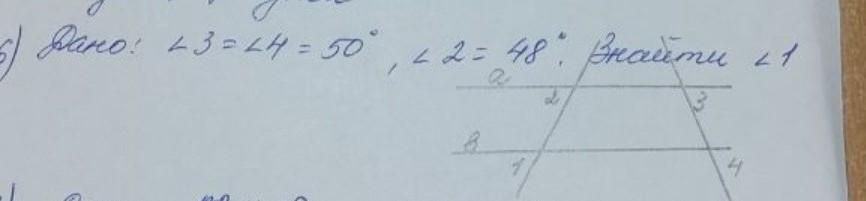 6) Дано: ∠3 = ∠4 = 50°, ∠2 = 48°. Знайти ∠1
a
2
3
в
1
4